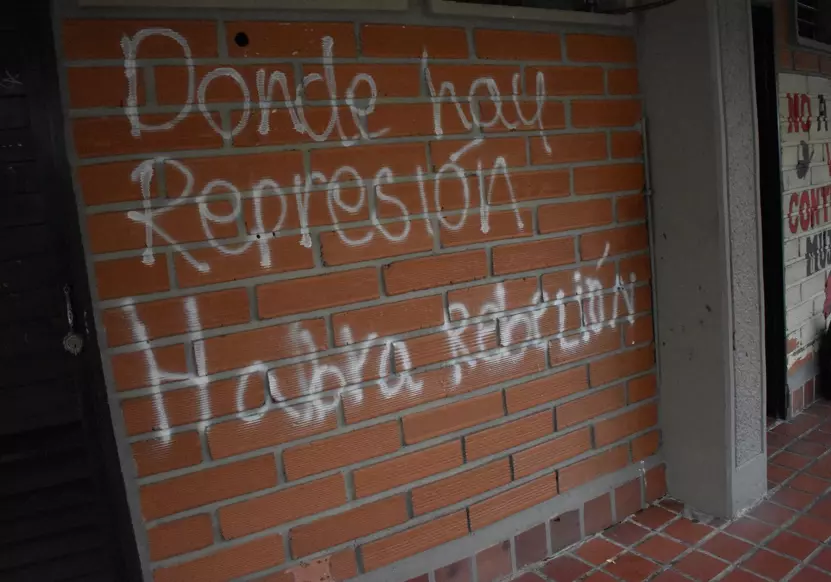 Donde hay
Represión
Habra Rebelión
NO A
CONT
MU